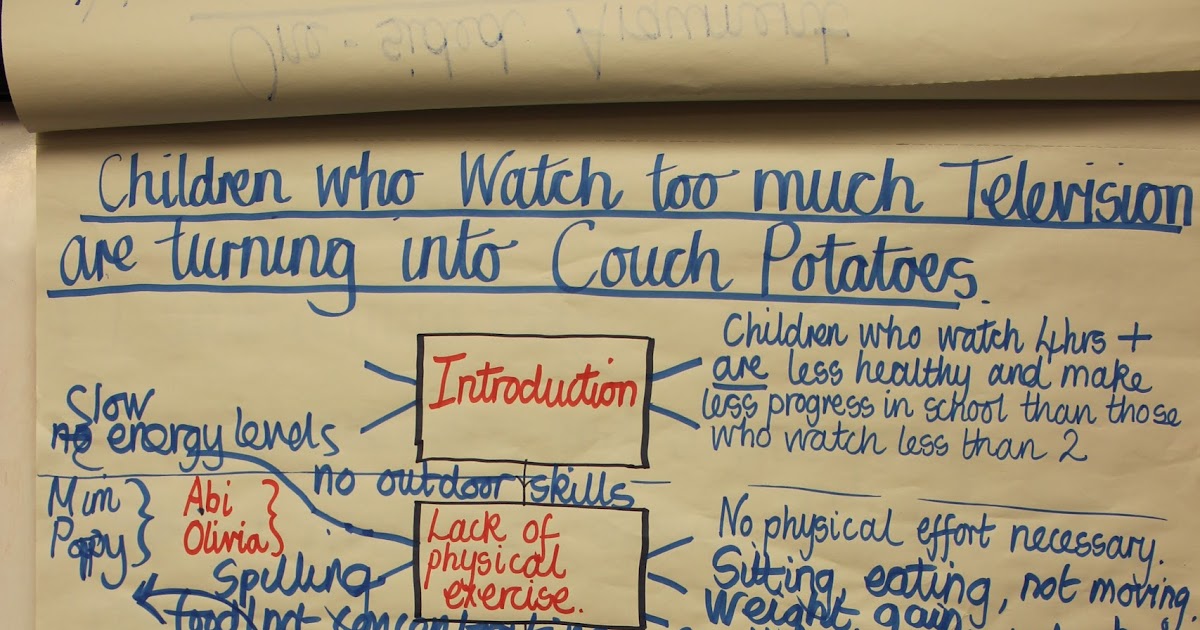 One-sided Argument
Children who Watch too much Television
are turning into Couch Potatoes.
Introduction
Children who watch 4hrs +
are less healthy and make
less progress in school than those
who watch less than 2
Slow
no energy levels
no outdoor skills
Mim
Poppy
Abi
Olivia
Lack of
physical
exercise.
No physical effort necessary.
Sitting, eating, not moving
Weight gain
Spilling
food/not